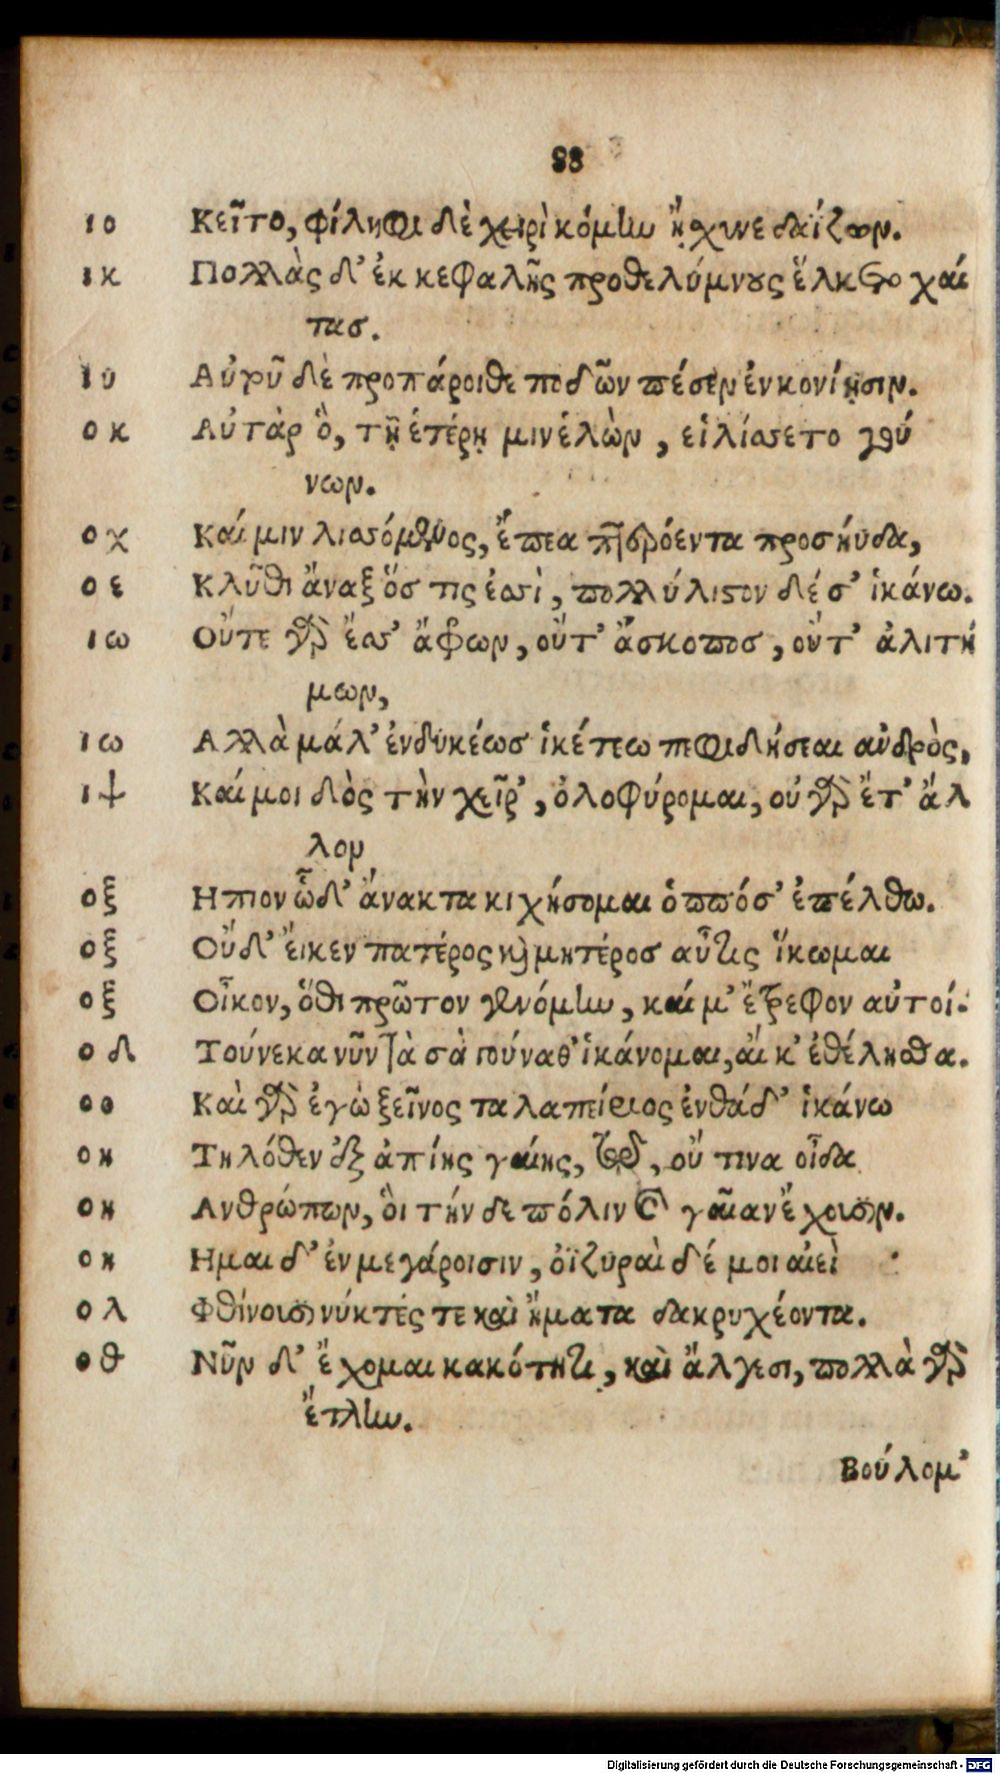 88
ιο Κεῖτο, φίλῃσι δὲ χερὶ κόμην ᾔχυνε δαΐζων.
ικ Πολλὰς δ' ἐκ κεφαλῆς προθελύμνους ἕλκετο χαί
τας.
ιυ Αὐτοῦ δὲ προπάροιθε ποδῶν πέσεν ἐν κονίῃσιν.
οκ Αὐτὰρ ὃ, τῇ ἑτέρῃ μιν ἑλὼν, εἱλίασετο γού
νων.
οχ Καί μιν λιασόμενος, ἔπεα πτερόεντα προσηύδα,
οε Κλῦθι ἄναξ ὅσ τις ἐσσὶ, πολλύλιστον δέ σ' ἱκάνω.
ιω Οὔτε γὰρ ἔσσ' ἄφρων, οὔτ' ἄσκοπος, οὔτ' ἀλιτή
μων,
ιω Αλλὰ μάλ' ἐνδυκέως ἱκέτεω πεφιδήσεαι ἀνδρὸς,
ιψ Καί μοι δὸς τὴν χεῖρ', ὀλοφύρομαι, οὐ γὰρ ἔτ' ἄλ
λον
οξ Ηπιον ὧδ' ἄνακτα κιχήσομαι ὁππόσ' ἐπέλθω.
οξ Οὔδ' εἴκεν πατέρος καὶ μητέρος αὖτις ἵκωμαι
οξ Οἶκον, ὅθι πρῶτον γενόμην, καί μ' ἔτρεφον αὐτοί.
οδ Τούνεκα νῦν τὰ σὰ γούναθ' ἱκάνομαι, αἴ κ' ἐθέλησθα.
οο Καὶ γὰρ ἐγὼ ξεῖνος ταλαπείριος ἐνθάδ' ἱκάνω
οη Τηλόθεν ἐξ ἀπίης γαίης, οὔ τινα οἶδα
οη Ανθρώπων, οἳ τήνδε πόλιν καὶ γαῖαν ἔχουσιν.
οη Ημαι δ' ἐν μεγάροισιν, ὀϊζυραὶ δέ μοι αἰεὶ
ολ Φθίνουσι νύκτές τε καὶ ἤματα δακρυχέοντα.
οθ Νῦν δ' ἔχομαι κακότητι, καὶ ἄλγεσι, πολλὰ γὰρ
ἔτλην.
Βούλομ'
Digitalisierung gefördert durch die Deutsche Forschungsgemeinschaft - DFG